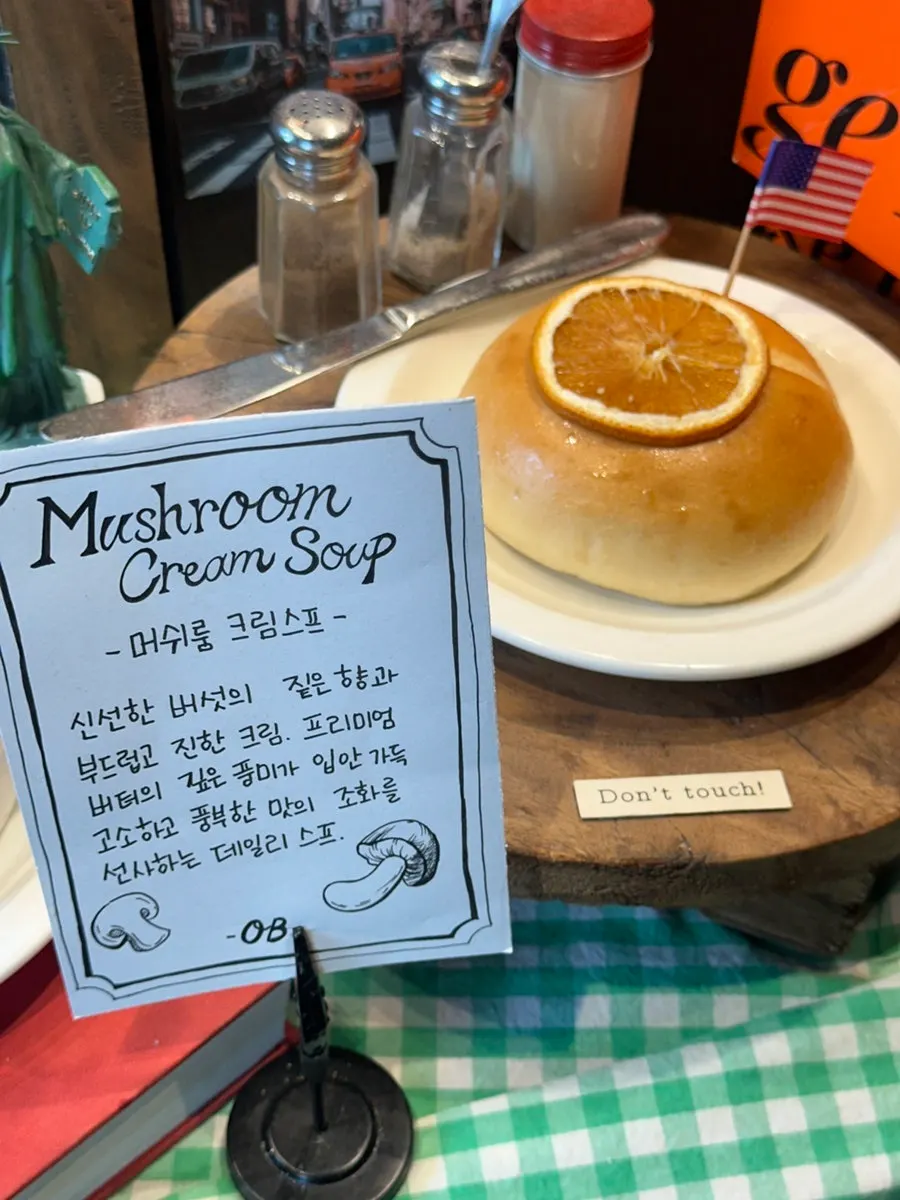 ge
Mushroom
Cream Soup
- 머쉬룸 크림스프 -
신선한 버섯의 짙은 향과
부드럽고 진한 크림. 프리미엄
버터의 깊은 풍미가 입안 가득
고소하고 풍부한 맛의 조화를
선사하는 데일리 스프.
-OB
Don't touch!